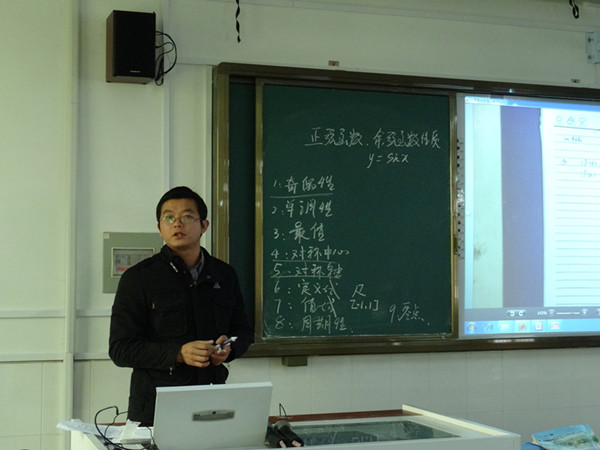 正弦函数、余弦函数性质
y=sinx
1:奇偶性
2:单调性
3:最值
4:对称中心
5:对称轴
6:定义域 R
7:值域 [-1,1]
8:周期性
9零点